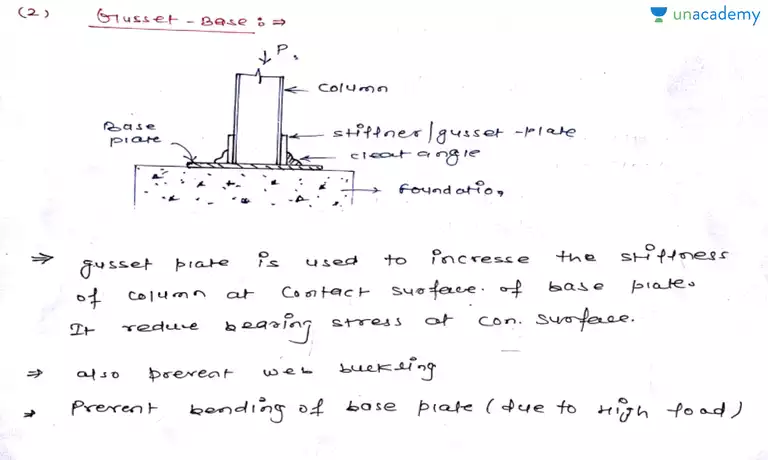 (2) Gusset - Base : ⇒
unacademy
P.
column
Base
plate
stiffner/gusset - plate
cleat angle
foundation
⇒ gusset plate is used to increase the stiffness
of column at contact surface. of base plate.
It reduce bearing stress at con. surface.
⇒ also prevent web buckling
⇒ Prevent bending of base plate (due to high load)